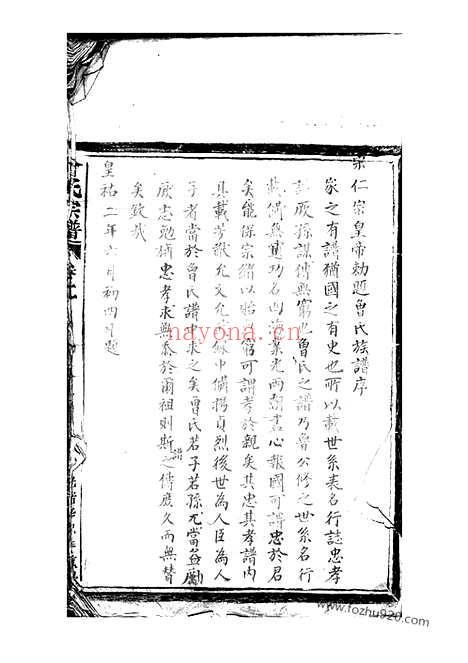 宋仁宗皇帝勅題曾氏族譜序
家之有譜猶國之有史也所以載世系表名行誌忠孝
厥孫謀傳無窮也曾氏之譜乃魯公修之世系名行
載備矣其功名內海業光兩朝盡心報國可謂忠於君
矣能保宗緒以貽無窮可謂孝於親矣其忠其孝譜內
具載芳猷允文允武中備揚貞烈後世為人臣為人
子者當於曾氏譜中求之矣曾氏若子若孫尤當益勵
厥志勉猶忠孝求無忝於爾祖則斯譜之傳庶久而無替
矣欽哉
皇祐二年六月初四日題
曾氏宗譜
nayona.cn
www.fozhu920.com